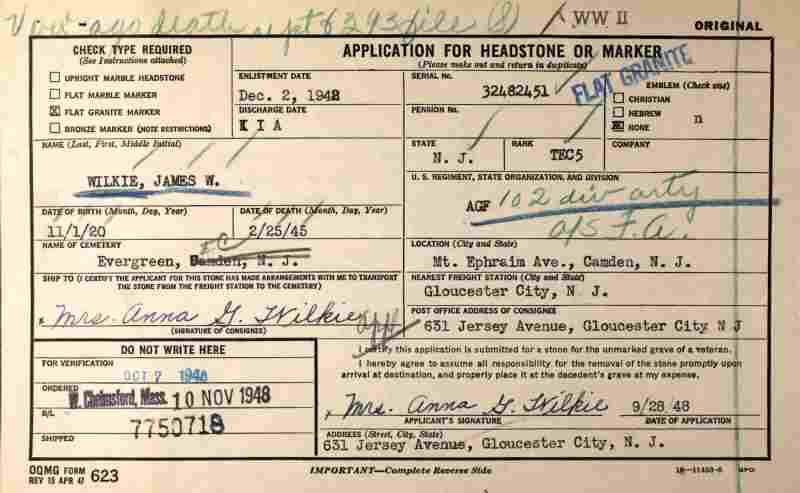 death
WW II
ORIGINAL
CHECK TYPE REQUIRED
(See Instructions attached)
UPRIGHT MARBLE HEADSTONE
FLAT MARBLE MARKER
X FLAT GRANITE MARKER
BRONZE MARKER (NOTE RESTRICTIONS)
APPLICATION FOR HEADSTONE OR MARKER
(Please make out and return in duplicate)
ENLISTMENT DATE
Dec. 2, 1942
DISCHARGE DATE
K I A
SERIAL No.
32482451
PENSION No.
FLAT GRANITE
EMBLEM (Check one)
CHRISTIAN
HEBREW
X NONE
n
STATE
N. J.
RANK
TEC5
COMPANY
NAME (Last, First, Middle Initial)
WILKIE, JAMES W.
U. S. REGIMENT, STATE ORGANIZATION, AND DIVISION
AGF 102 div arty
o/s F.A.
DATE OF BIRTH (Month, Day, Year)
11/1/20
DATE OF DEATH (Month, Day, Year)
2/25/45
NAME OF CEMETERY
Evergreen, Camden, N. J.
LOCATION (City and State)
Mt. Ephraim Ave., Camden, N. J.
SHIP TO (I CERTIFY THE APPLICANT FOR THIS STONE HAS MADE ARRANGEMENTS WITH ME TO TRANSPORT
THE STONE FROM THE FREIGHT STATION TO THE CEMETERY)
x Mrs. Anna G. Wilkie
(SIGNATURE OF CONSIGNEE)
NEAREST FREIGHT STATION (City and State)
Gloucester City, N J.
POST OFFICE ADDRESS OF CONSIGNEE
631 Jersey Avenue, Gloucester City N J
DO NOT WRITE HERE
FOR VERIFICATION
OCT 7 1948
ORDERED
W. Chelmsford, Mass. 10 NOV 1948
B/L
7750718
SHIPPED
I certify this application is submitted for a stone for the unmarked grave of a veteran.
I hereby agree to assume all responsibility for the removal of the stone promptly upon
arrival at destination, and properly place it at the decedent's grave at my expense.
x Mrs. Anna G. Wilkie 9/28/48
APPLICANT'S SIGNATURE DATE OF APPLICATION
ADDRESS (Street, City, State)
631 Jersey Avenue, Gloucester City, N. J.
OQMG FORM
REV 15 APR 47 623
IMPORTANT—Complete Reverse Side
GPO